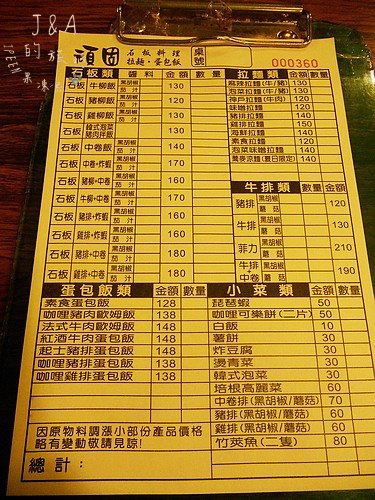 J&A
的旅
頑固
石板料理
拉麵·蛋包飯
桌號
000360
石板類 醬料 金額 數量
石板 牛柳飯 黑胡椒 茄汁 130
石板 豬柳飯 黑胡椒 茄汁 130
石板 雞柳飯 黑胡椒 茄汁 130
石板 韓式泡菜豬肉拌飯 黑胡椒 茄汁 130
石板 中卷飯 黑胡椒 茄汁 140
石板 中卷+炸蝦 黑胡椒 茄汁 170
石板 豬柳+中卷 黑胡椒 茄汁 160
石板 牛柳+中卷 黑胡椒 茄汁 170
石板 豬排+炸蝦 黑胡椒 茄汁 160
石板 豬排+中卷 黑胡椒 茄汁 160
石板 雞排+炸蝦 黑胡椒 茄汁 180
石板 雞排+中卷 黑胡椒 茄汁 180
拉麵類 金額 數量
麻辣拉麵(牛/豬) 130
泡菜拉麵(牛/豬) 130
神戶拉麵(牛肉) 120
味噌拉麵 120
豬排拉麵 140
雞排拉麵 150
海鮮拉麵 140
素食拉麵 120
泡菜味噌拉麵 140
蕎麥涼麵(夏日限定) 140
牛排類 數量 金額
豬排 黑胡椒 蘑菇 120
牛排 黑胡椒 蘑菇 130
菲力 黑胡椒 蘑菇 210
牛排 中卷 黑胡椒 蘑菇 190
蛋包飯類 金額 數量
素食蛋包飯 128
咖哩豬肉歐姆飯 138
法式牛肉歐姆飯 148
紅酒牛肉蛋包飯 148
起士豬排蛋包飯 148
咖哩豬排蛋包飯 138
咖哩雞排蛋包飯 138
小菜類 金額 數量
琵琶蝦 50
咖哩可樂餅(二片) 50
白飯 10
薯餅 30
炸豆腐 30
燙青菜 30
韓式泡菜 30
培根高麗菜 60
中卷排(黑胡椒/蘑菇) 70
豬排(黑胡椒/蘑菇) 60
雞排(黑胡椒/蘑菇) 60
竹莢魚(二隻) 80
因原物料調漲小部份產品價格
略有變動敬請見諒!
總計: